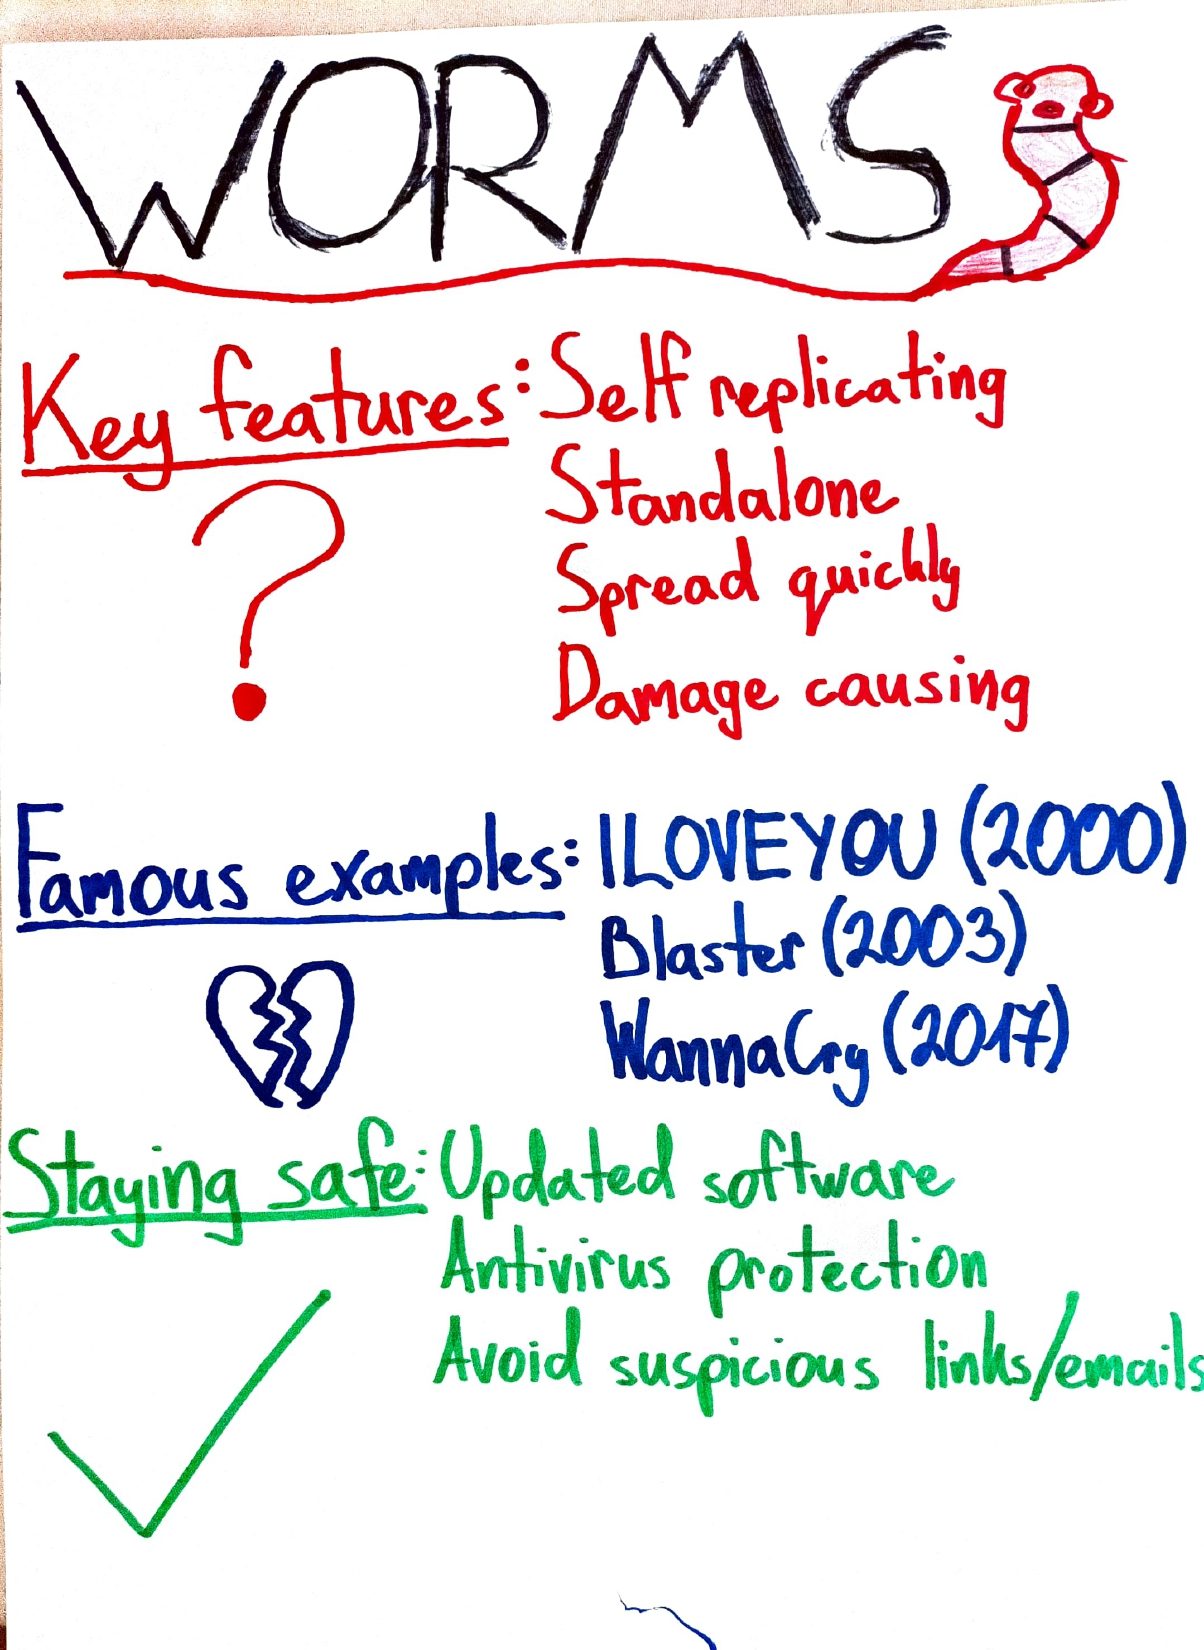 WORMS
Key features: Self replicating
Standalone
Spread quickly
Damage causing
Famous examples: ILOVEYOU (2000)
Blaster (2003)
WannaCry (2017)
Staying safe: Updated software
Antivirus protection
Avoid suspicious links/emails